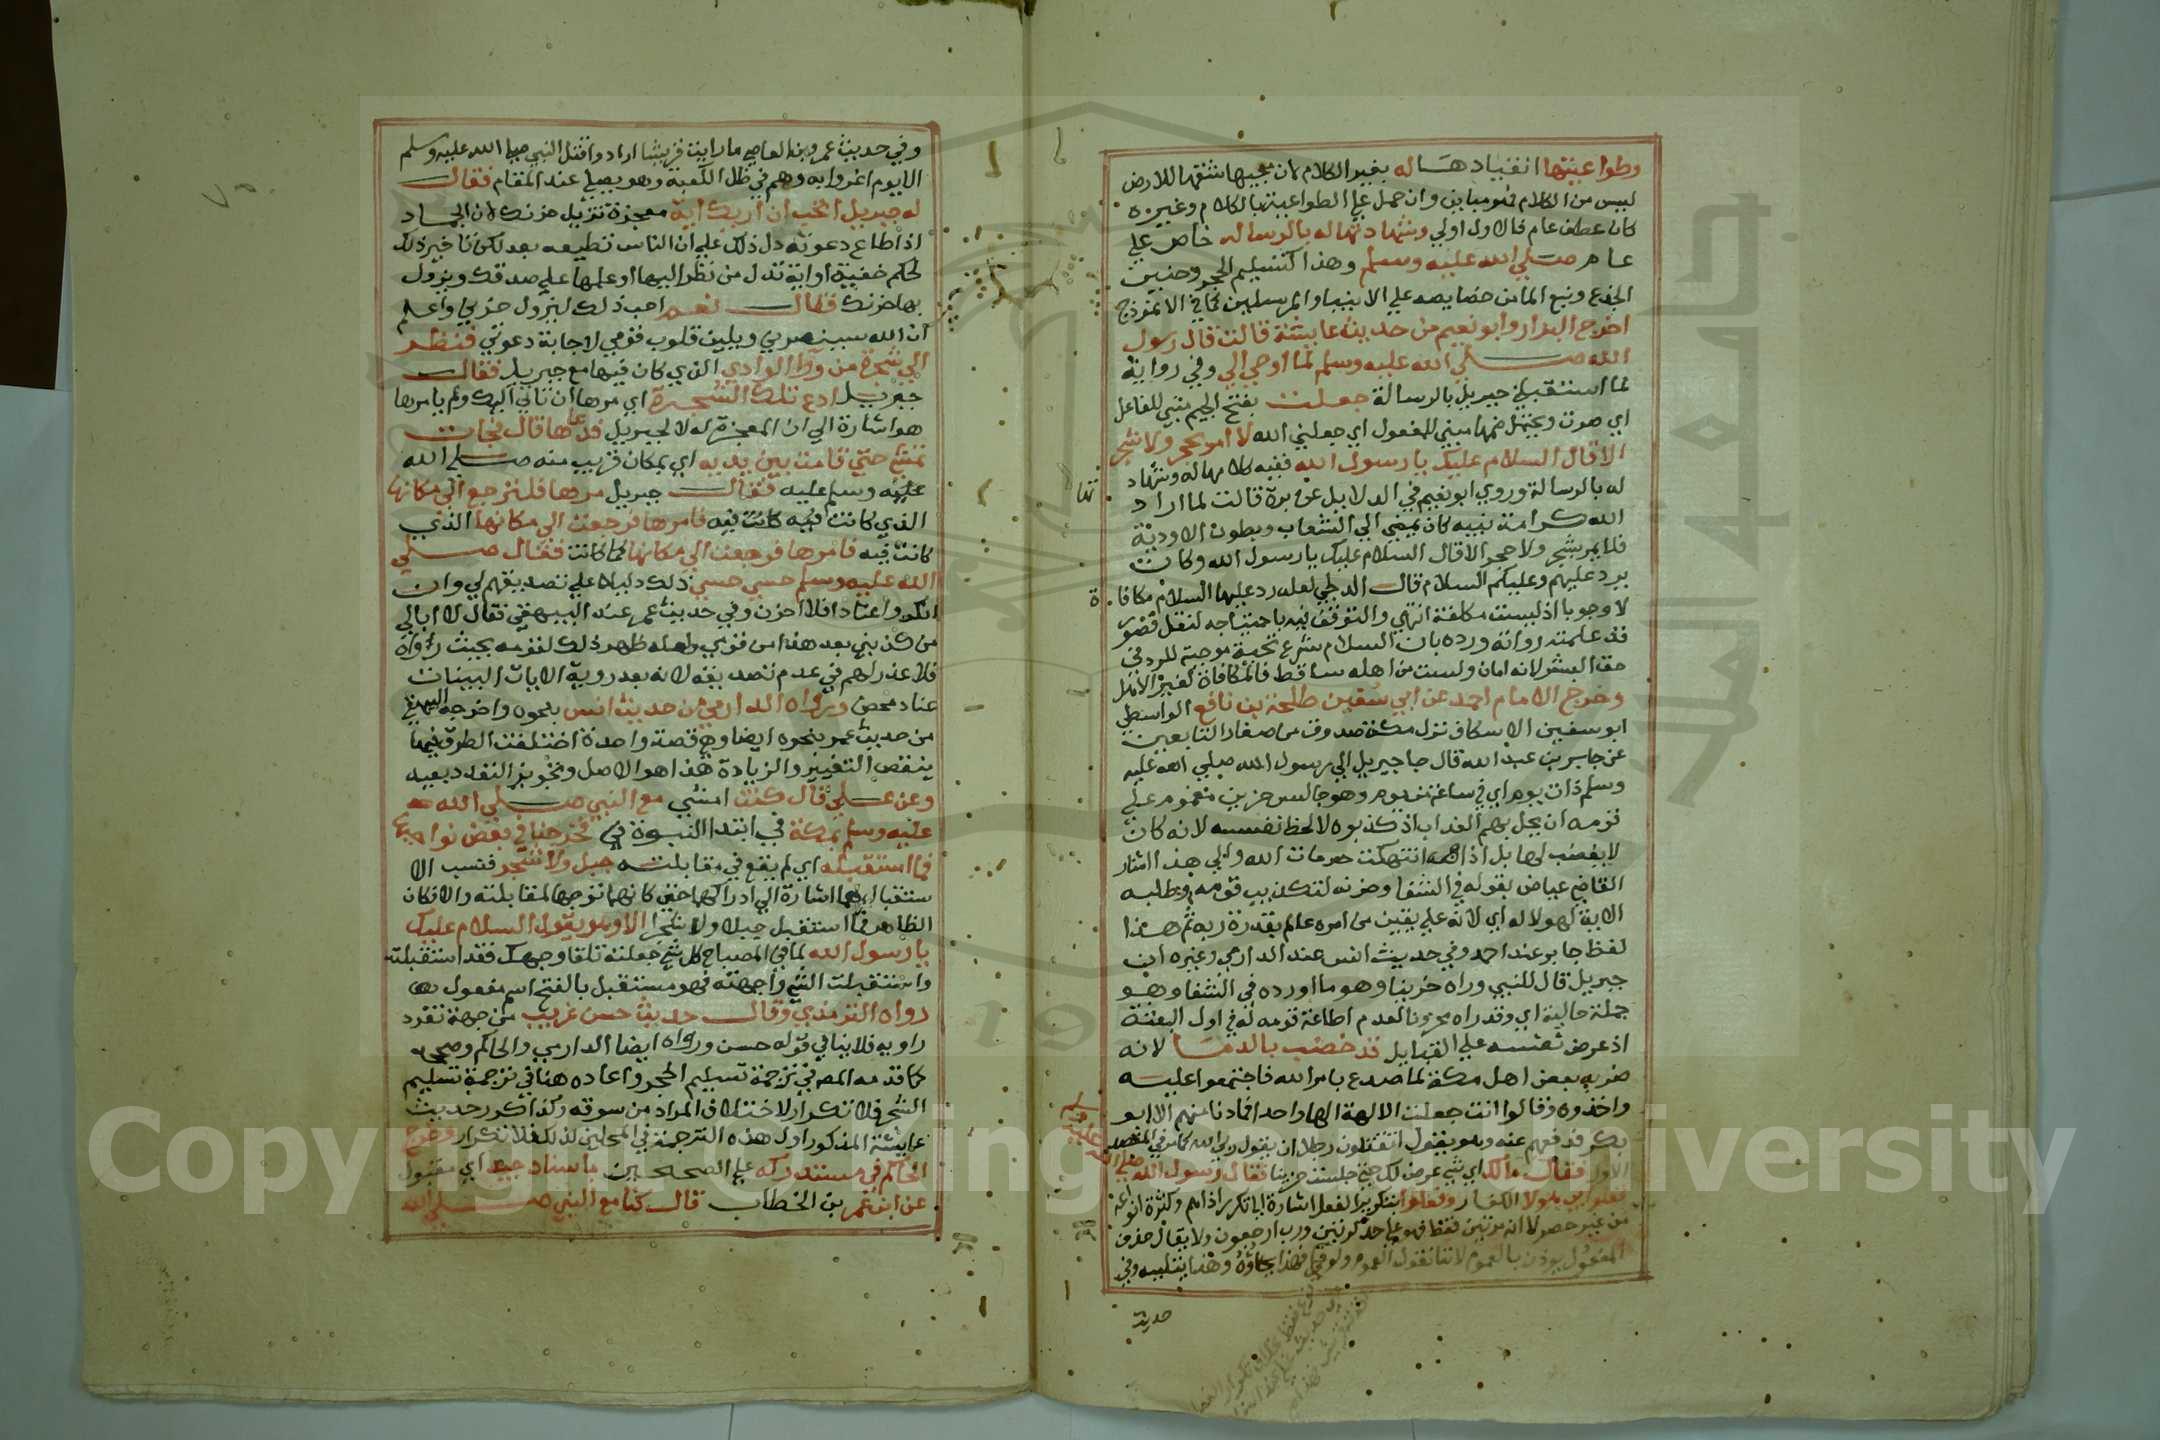 وطواعيتها انقيادها له بغير الكلام لان مجيبها شقها للارض
ليس من الكلام فهو مباين وان حمل على الطواعية بالكلام وغيره
كان عطف عام فالاول اولي وشهادتها له بالرساله خاص علي
عام صلي الله عليه وسلم وهذا كتسليم الحجر وحنين
الجذع ونبع الما من خصايصه علي الانبيا والمرسلين كما في الانموذج
اخرج البزار وابو نعيم من حديث عايشة قالت قال رسول
الله صلي الله عليه وسلم لما اوحي الي وفي رواية
لما استقبلني جبريل بالرسالة جعلت بفتح الجيم مبني للفاعل
اي صرت ويحتمل ضمها مبني للمفعول اي جعلني الله لا امر بحجر ولا شجر
الا قال السلام عليك يا رسول الله ففيه كلامها له وشهاد
تها
له بالرسالة وروي ابو نعيم في الدلايل عن برة قالت لما اراد
الله كرامة نبيه كان يمضي الي الشعاب وبطون الاودية
فلا يمر بشجر ولا حجر الا قال السلام عليك يا رسول الله وكان
يرد عليهم وعليكم السلام قال الدلجي لعله رد عليها السلام مكافا
ة
لا وجوبا اذ ليست مكلفة انتهي والتوقف فيه باحتياجه لنقل قصور
فقد علمته رواته ورده بان السلام شرع تحية موجبة للرد في
حق البشر لانه امان وليست من اهله ساقط فالمكافاة لغير الاهل
وخرج الامام احمد عن ابي سفين طلحة بن نافع الواسطي
ابو سفين الاسكاف نزل مكة صدوق من صغار التابعين
عن جابر بن عبد الله قال جا جبريل الي رسول الله صلي الله عليه
وسلم ذات يوم اي في ساعة من يوم وهو جالس حزين مغموم علي
قومه ان يحل بهم العذاب اذ كذبوه لا لحظ نفسه لانه كان
لا يغضب لها بل اذا انتهكت حرمات الله والي هذا اشار
القاضي عياض بقوله في الشفا وحزنه لتكذيب قومه وطلبه
الاية لهو لا له اي لانه علي يقين من امره عالم بقدرة ربه ثم هذا
لفظ جابر عند احمد وفي حديث انس عند الدارمي وغيره ان
جبريل قال للنبي وراه حزينا وهو ما اورده في الشفا وهو
جملة حالية اي وقد راه محزونا لعدم اطاعة قومه له في اول البعثة
اذ عرض نفسه علي القبايل قد خضب بالدما لانه
ضربه بعض اهل مكة لما صدع بامر الله فاجتمعوا عليه
واخذوه وقالوا انت جعلت الالهة الها واحدا فما دنا منهم الا ابو
بكر فدفعهم عنه وهو يقول اتقتلون رجلا ان يقول ربي الله كما مر في المقصد
الاول فقال مالك اي شي عرض لك حتي جلست حزينا فقال رسول الله صلي الله عليه وسلم
فعلوا بي هولا الكفار وفعلوا بتكرير الفعل اشارة الي تكرر اذاهم وكثرة انواعه
من غير حصر لا انه مرتين فقط فهو علي حد كرتين ورب ارجعون ولا يقال حذف
المفعول يوذن بالعموم لانا نقول العموم ولو
حديث
وفي حديث عمرو بن العاصي ما رايت قريشا ارادوا قتل النبي صلي الله عليه وسلم
الا يوم اغروا به وهم في ظل الكعبة وهو يصلي عند المقام فقال
له جبريل اتحب ان اريك اية معجزة تزيل حزنك لان الجماد
اذا طاع دعوته دل ذلك علي ان الناس تطيعه بعد لكن تاخير ذلك
لحكم خفية او اية تدل من نظر اليها او علمها علي صدقك ويزول
بها حزنك فقال نعم احب ذلك ليزول حزني واعلم
ان الله سينصرني ويلين قلوب قومي لاجابة دعوتي فنظر
الي شجرة من ورا الوادي الذي كان فيها مع جبريل فقال
جبريل ادع تلك الشجرة اي مرها ان تاتي اليك ولم يامرها
هو اشارة الي ان المعجزة له لا لجبريل فدعاها قال فجات
تمشي حتي قامت بين يديه اي بمكان قريب منه صلي الله
عليه وسلم عليه فقال جبريل مرها فلترجع الي مكانها
الذي كانت فيه كانت فيه فامرها فرجعت الي مكانها الذي
كانت فيه فامرها فرجعت الي مكانها كما كانت فقال صلي
الله عليه وسلم حسبي حسبي ذلك دليلا علي تصديقهم لي وان
انكروا عنادا فلا احزن وفي حديث عمر عند البيهقي فقال لا ابالي
من كذبني بعد هذا من قومي ولعله ظهر ذلك لقومه بحيث راواه
فلا عذر لهم في عدم تصديقه لانه بعد روية الايات البينات
عناد محض ورواه الدارمي من حديث انس بنحوه واخرجه البيهقي
من حديث عمر بنحوه ايضا وهي قصة واحدة اختلفت الطرق فيها
بنقص التغيير والزيادة هذا هو الاصل وتجويز التعدد بعيد
وعن علي قال كنت امشي مع النبي صلي الله
عليه وسلم بمكة في ابتدا النبوة فخرجنا في بعض نواحيها
فما استقبله اي لم يقع في مقابلته جبل ولا شجر فنسب الا
ستقبال لهما اشارة الي ادراكهما حتي كانهما توجها لمقابلته والا فكان
الظاهر فما استقبل جبلا ولا شجرا الا وهو يقول السلام عليك
يا رسول الله لما في المصباح كل شي جعلته تلقا وجهك فقد استقبلته
واستقبلت الشي واجهته فهو مستقبل بالفتح اسم مفعول
رواه الترمذي وقال حديث حسن غريب من جهة تفرد
راويه فلا ينافي قوله حسن ورواه ايضا الدارمي والحاكم وصححه
كما قدمه المص في ترجمة تسليم الحجر واعاده هنا في ترجمة تسليم
الشجر فلا تكرار لاختلاف المراد من سوقه وكذا كرر حديث
عايشة المذكور اول هذه الترجمة في المحلين لذلك فلا تكرار وخرج
الحاكم في مستدركه علي الصحيحين باسناد جيد اي مقبول
عن ابن عمر بن الخطاب قال كنا مع النبي صلي الله
Copyright © King University